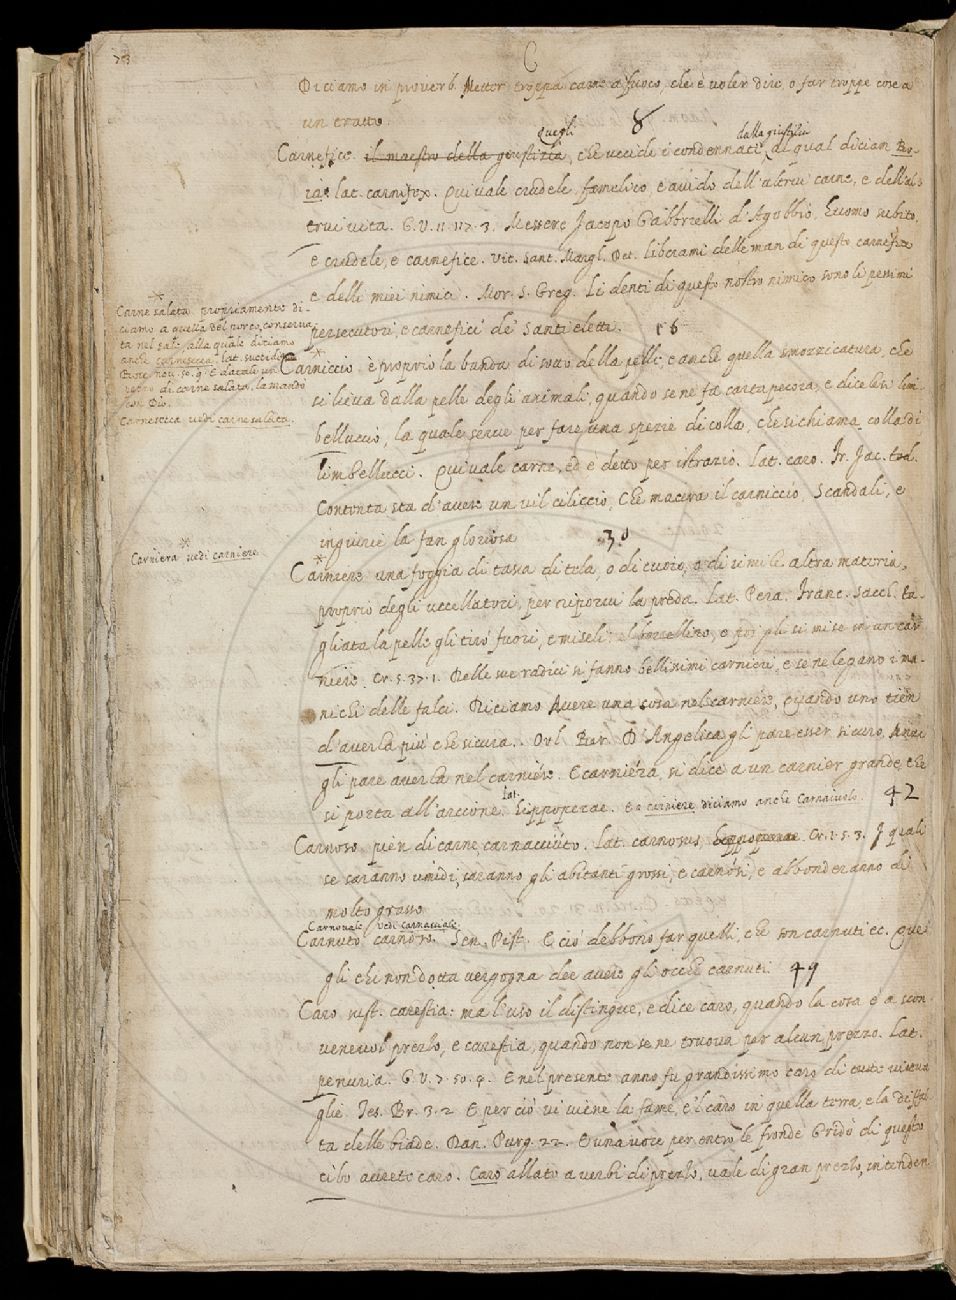 C
Diciamo in proverb. Metter troppa carne a fuoco, che è voler dire, o far troppe cose a
un tratto. 8
Quegli dalla giustizia
Carnefice. il maestro della giustizia, che uccide i condennati, al qual diciam Bo-
ia. lat. carnifex. Qui vale crudele, famelico e avido dell'altrui carne, e dell'al-
trui vita. G.V. 11. 117. 3. Messere Jacopo Gabbrielli d'Agobbio, huomo subito,
e crudele, e carnefice. Vit. Sant. Margl. Pet. liberami delle man di questo carnefice
e delli miei nimici. Mor. S. Greg. Li denti di questo nostro nimico sono li pessimi
persecutori, e carnefici de' Santi eletti. 16
Carne salata propriamente di-
ciamo a quella del porco, conserva
ta nel sale, alla quale diciamo
anche carnesecca. lat. succidia.
Bocc. nov.
pezzo di carne salata, la mandò
con Dio.
Carnesecca vedi carne salata.
Carniccio è proprio la banda di sotto della pelle, e anche quella smozzicatura, che
si lieva dalla pelle degli animali, quando se ne fa cartapecora, e dicesi lim
belluccio, la quale serve per fare una spezie di colla, che si chiama colla di
limbellucci. Qui vale carne, ed è detto per istrazio. Lat. caro. Fr. Jac. tod.
Contenta sta d'avere un vil ciliccio, Che macera il carniccio, Scandali, e
ingiurie la fan gloriosa 30
Carniera vedi carniere.
Carniere una foggia di tasca di tela, o di cuoio, o di simile altra materia,
proprio degli uccellatori, per riporvi la preda. Lat. Pera. Franc. Sacch. ta-
gliata la pelle gli tirò fuori, e miseli nel borsellino, e poi gli si mise in un car
niere. Cr. 5. 37. 1. Delle sue radici si fanno bellissimi carnieri, e se ne legano i ma-
nichi delle falci. Diciamo Avere una cosa nel carniere, quando uno tien
d'averla più che sicura. Orl. Ber. D'Angelica gli pare esser sicuro, Anzi
gli pare averla nel carniere. E carniera, si dice a un carnier grande, che
si porta all'arcione. Lat. hippoperae. E a carniere diciamo anche Carnaiuolo. 42
Carnoso pien di carne, carnacciuto. Lat. carnosus, hippoperae. Cr. 1. 5. 3. I quali
se saranno umidi, saranno gli abitanti grossi, e carnosi, e abbonderanno di
molto grasso
Carnovale vedi carnasciale.
Carnuto carnoso. Sen. Pist. E ciò debbono far quelli, che son carnuti ec. Que
gli chi non dotta vergogna dee avere gli occhi carnuti. 49
Caro sust. carestia: ma l'uso il distingue, e dice caro, quando la cosa è a scon
venevol prezzo, e carestia, quando non se ne truova per alcun prezzo. Lat.
penuria. G.V. 7. 50. 4. E nel presente anno fu grandissimo caro di tutte vittova
glie. Tes. Br. 3. 2. E per ciò vi viene la fame, e 'l caro in quella terra, e la
ta delle biade. Dan. Purg. 22. E una voce per entro le fronde Gridò di questo
cibo avrete caro. Caro allato a verbi di prezzo, vale di gran prezzo, intenden